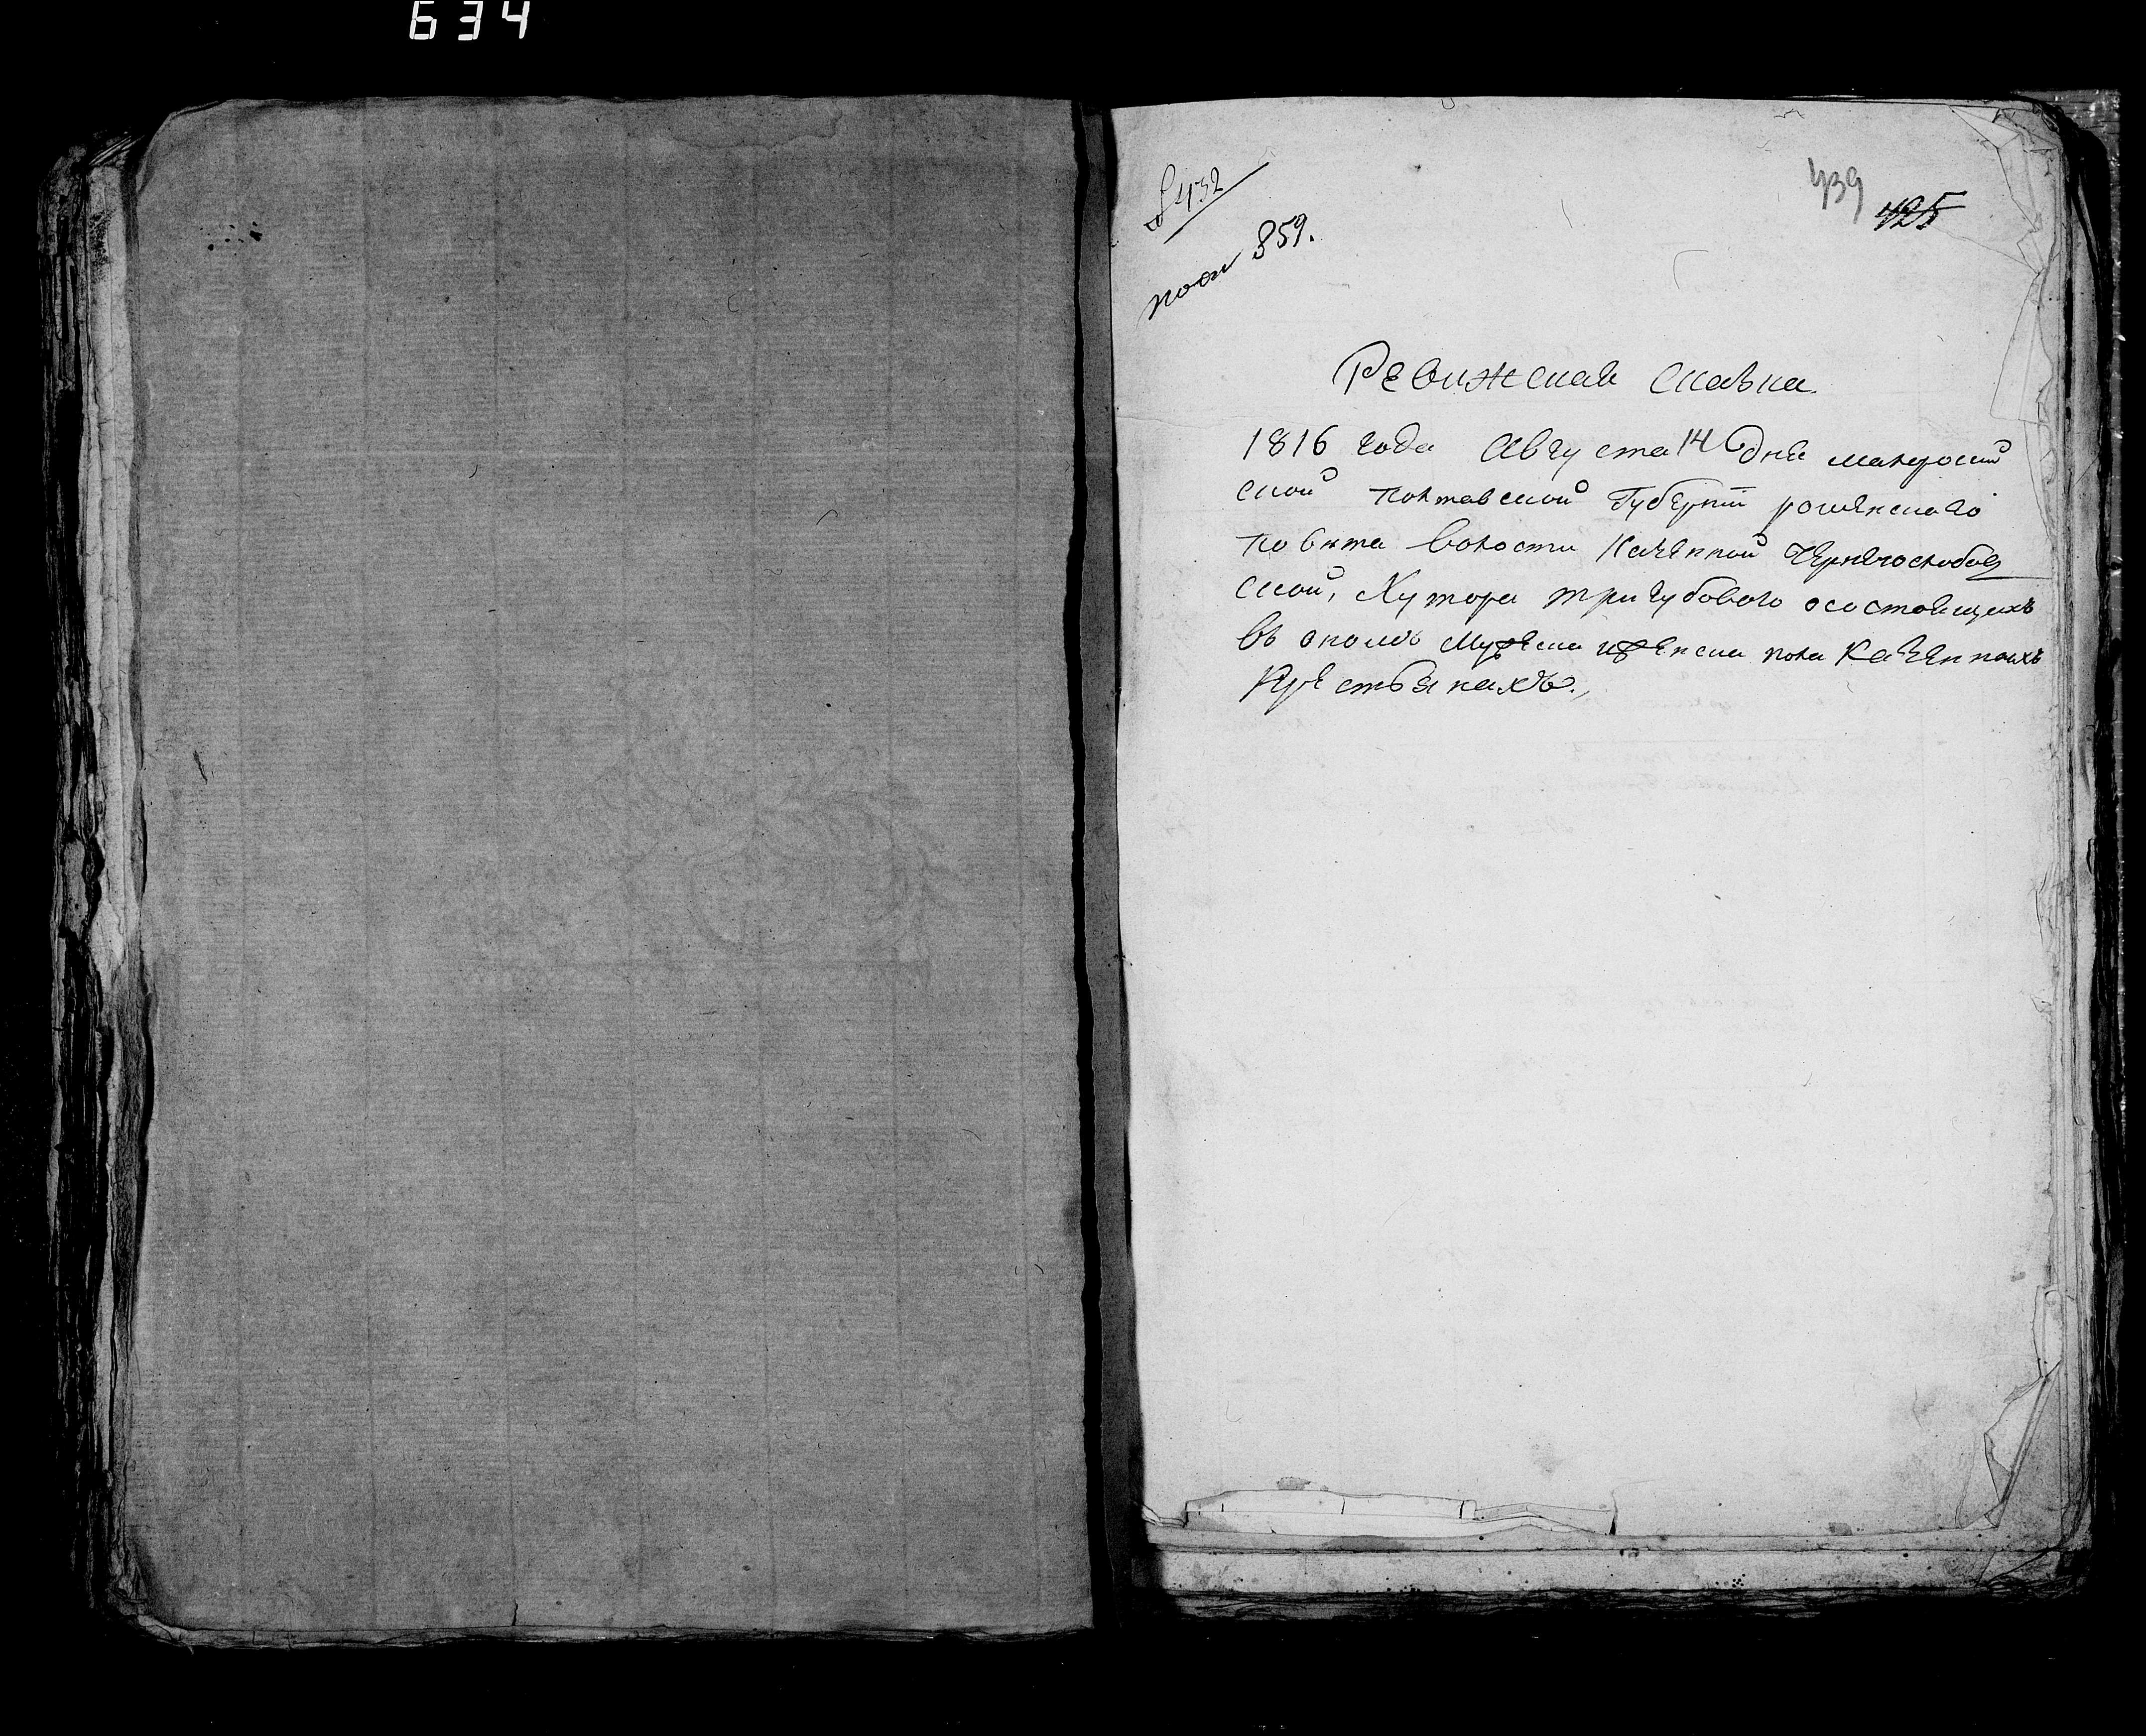 634
432
439
425
859.
Ревижская сказка.
1816 года Августа 14 дня малороссий
ской Полтавской Губернии роменского
повѣта волости Казенной Чернечослобод
ской, Хутора тригубового осостоящихъ
въ ономъ Мужеска иженска пола Казенныхъ
Крестьянахъ.